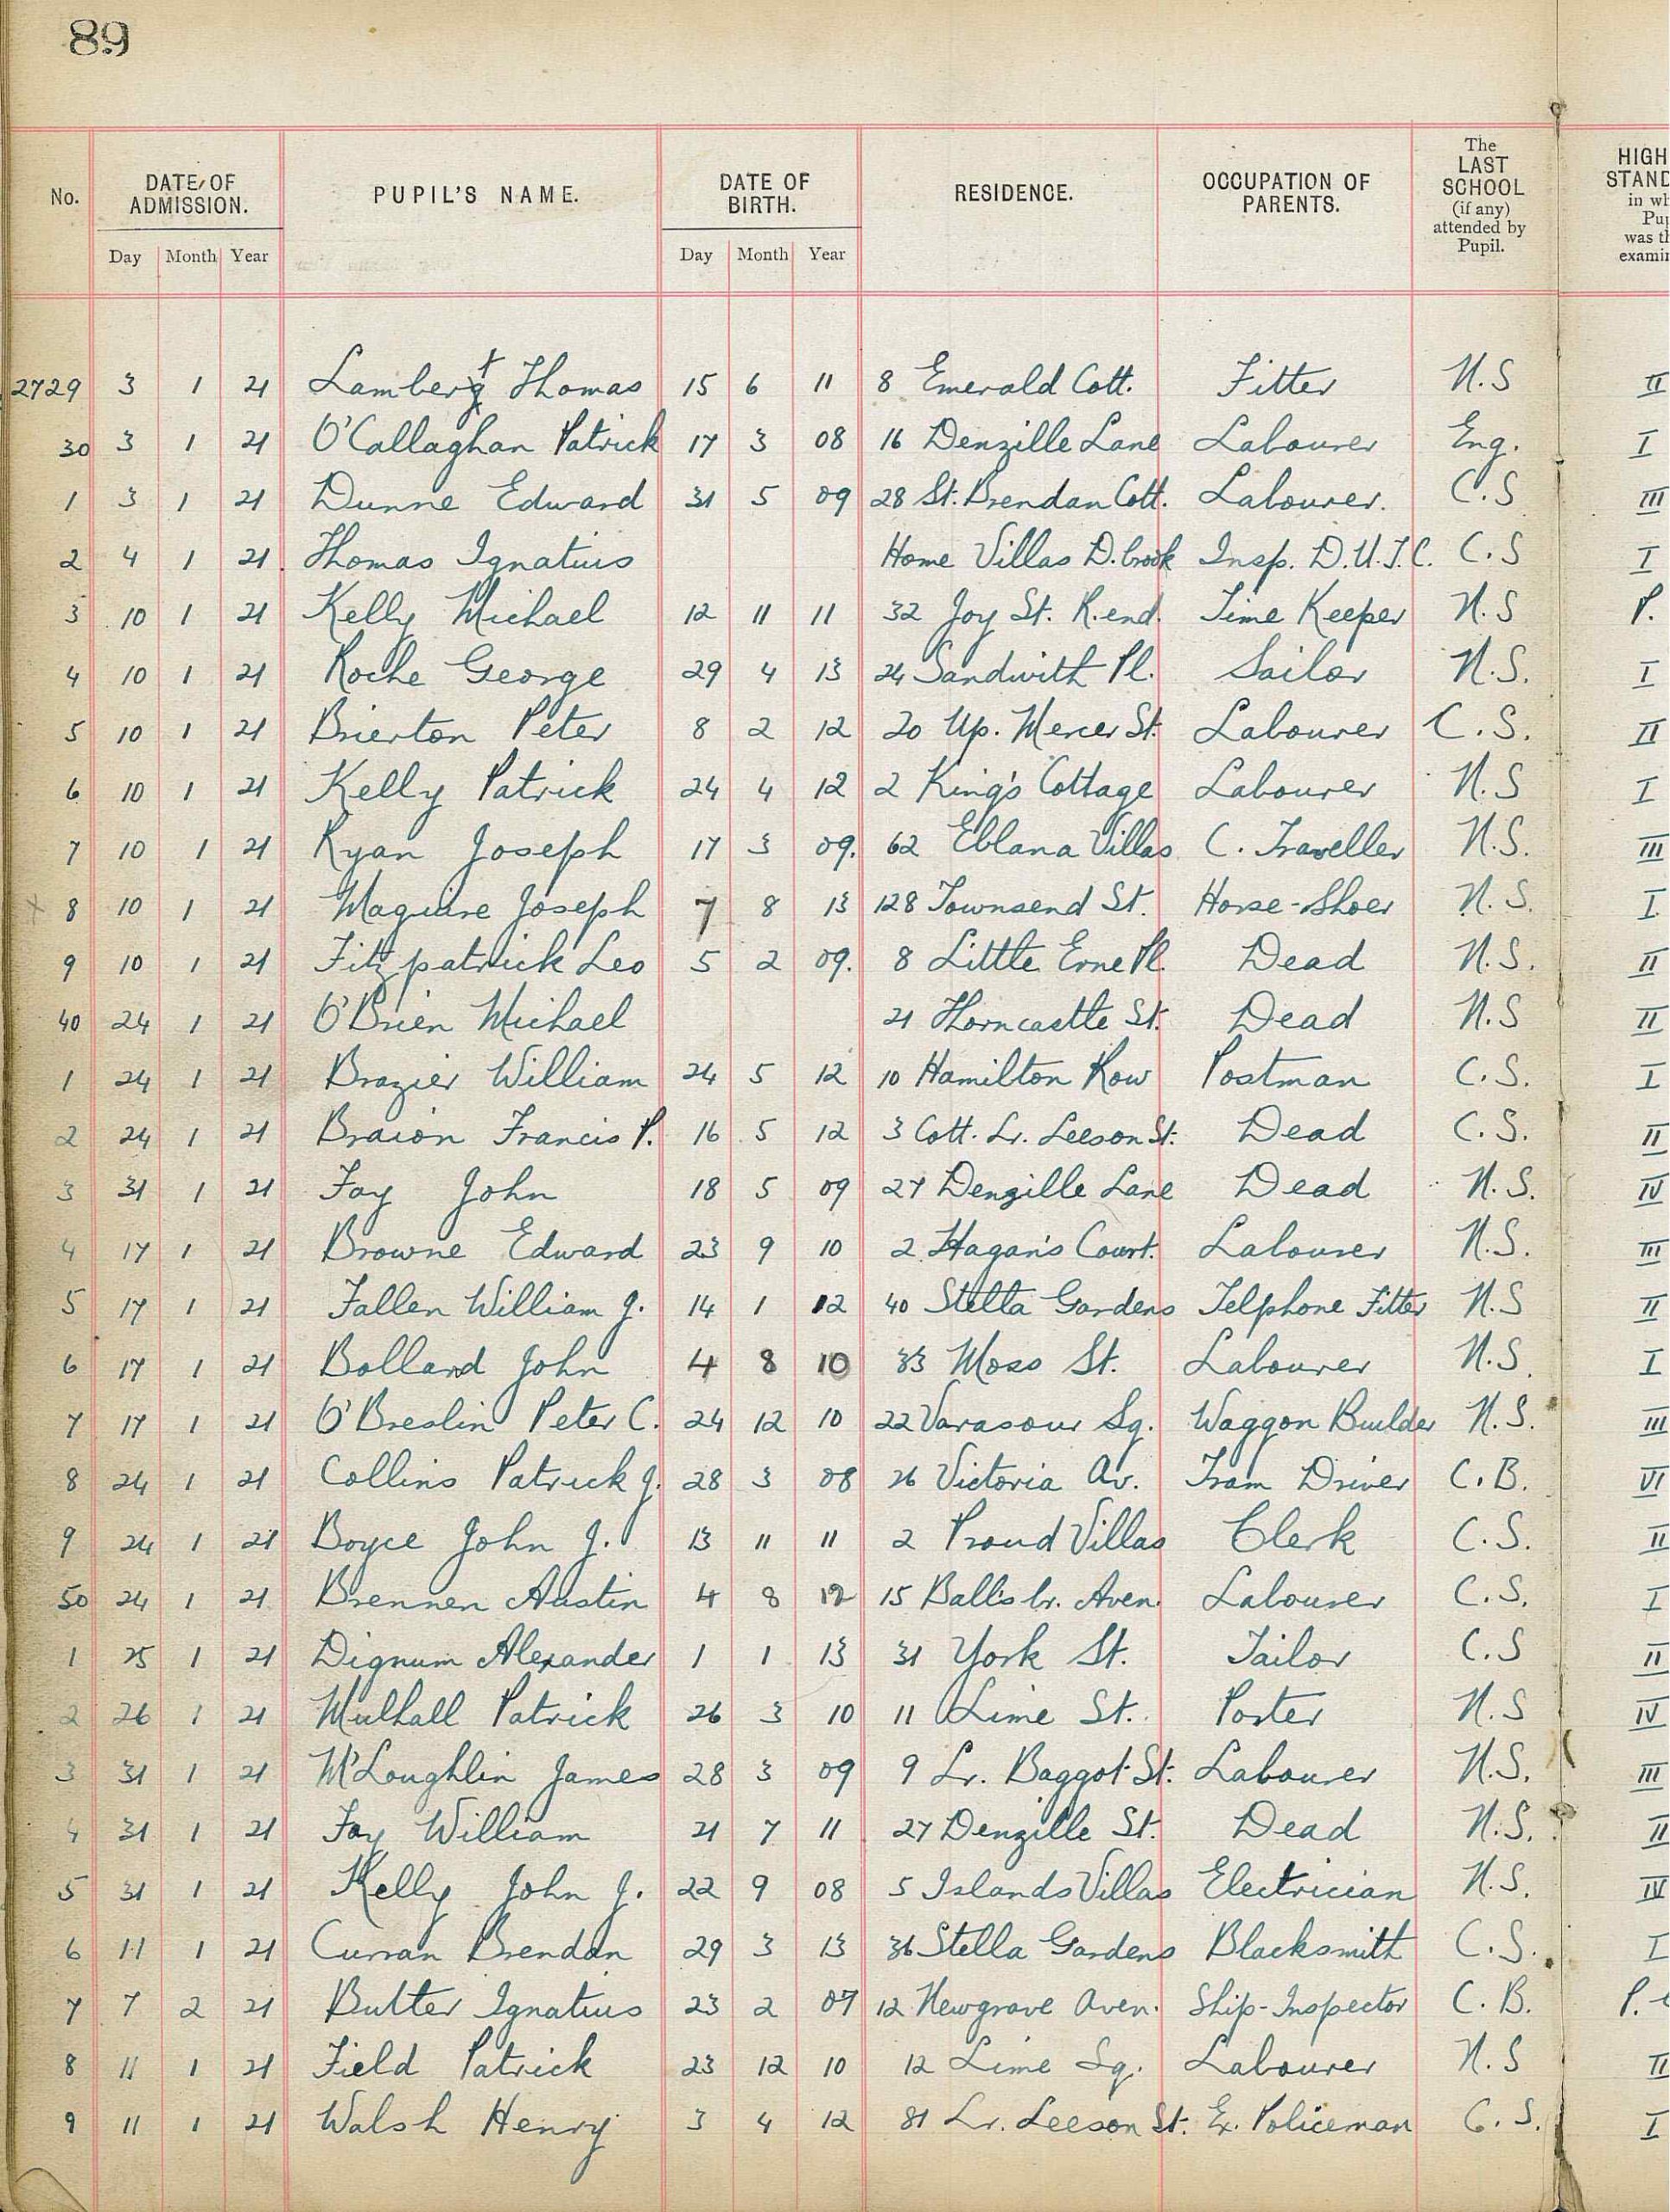 89
No. DATE OF ADMISSION. PUPIL'S NAME. DATE OF BIRTH. RESIDENCE. OCCUPATION OF PARENTS. The LAST SCHOOL (if any) attended by Pupil. HIGH STAND in wh Pup was th examin
Day Month Year Day Month Year
2729 3 1 21 Lambert Thomas 15 6 11 8 Emerald Cott. Fitter N.S II
30 3 1 21 O'Callaghan Patrick 17 3 08 16 Denzille Lane Labourer Eng. I
1 3 1 21 Dunne Edward 31 5 09 28 St. Brendan Cott. Labourer. C.S III
2 4 1 21 Thomas Ignatius Home Villas D.brook Insp. D.U.T.C. C.S I
3 10 1 21 Kelly Michael 12 11 11 32 Joy St. R.end. Time Keeper N.S P.
4 10 1 21 Roche George 29 4 13 24 Sandwith Pl. Sailor N.S. I
5 10 1 21 Brierton Peter 8 2 12 20 Up. Mercer St. Labourer C.S. II
6 10 1 21 Kelly Patrick 24 4 12 2 King's Cottage Labourer N.S I
7 10 1 21 Ryan Joseph 17 3 09. 62 Eblana Villas C. Traveller N.S. III
x 8 10 1 21 Maguire Joseph 7 8 13 128 Townsend St. Horse-Shoer N.S. I.
9 10 1 21 Fitzpatrick Leo 5 2 09. 8 Little Erne Pl. Dead N.S. II
40 24 1 21 O'Brien Michael 21 Thorncastle St. Dead N.S II
1 24 1 21 Brazier William 24 5 12 10 Hamilton Row Postman C.S. I
2 24 1 21 Braion Francis P. 16 5 12 3 Cott. Lr. Leeson St. Dead C.S. II
3 31 1 21 Fay John 18 5 09 27 Denzille Lane Dead N.S. IV
4 17 1 21 Browne Edward 23 9 10 2 Hagan's Court. Labourer N.S. III
5 17 1 21 Fallen William J. 14 1 12 40 Stella Gardens Telphone Fitter N.S II
6 17 1 21 Bollard John 4 8 10 33 Moss St. Labourer N.S. I
7 17 1 21 O'Breslin Peter C. 24 12 10 22 Vavasour Sq. Waggon Builder N.S. III
8 24 1 21 Collins Patrick J. 28 3 08 26 Victoria Av. Tram Driver C.B. VI
9 24 1 21 Boyce John J. 13 11 11 2 Proud Villas Clerk C.S. II
50 24 1 21 Brennen Austin 4 8 12 15 Ballsbr. Aven. Labourer C.S. I
1 25 1 21 Dignum Alexander 1 1 13 31 York St. Tailor C.S II
2 26 1 21 Mulhall Patrick 26 3 10 11 Lime St. Porter N.S IV
3 31 1 21 McLoughlin James 28 3 09 9 Lr. Baggot St. Labourer N.S. III
4 31 1 21 Fay William 21 7 11 27 Denzille St. Dead N.S. II
5 31 1 21 Kelly John J. 22 9 08 5 Islands Villas Electrician N.S. IV
6 11 1 21 Curran Brendan 29 3 13 36 Stella Gardens Blacksmith C.S. I
7 7 2 21 Butter Ignatius 23 2 07 12 Newgrove Aven. Ship-Inspector C.B. P.
8 11 1 21 Field Patrick 23 12 10 12 Lime Sq. Labourer N.S II
9 11 1 21 Walsh Henry 3 4 12 81 Lr. Leeson St. Ex. Policeman C.S. I